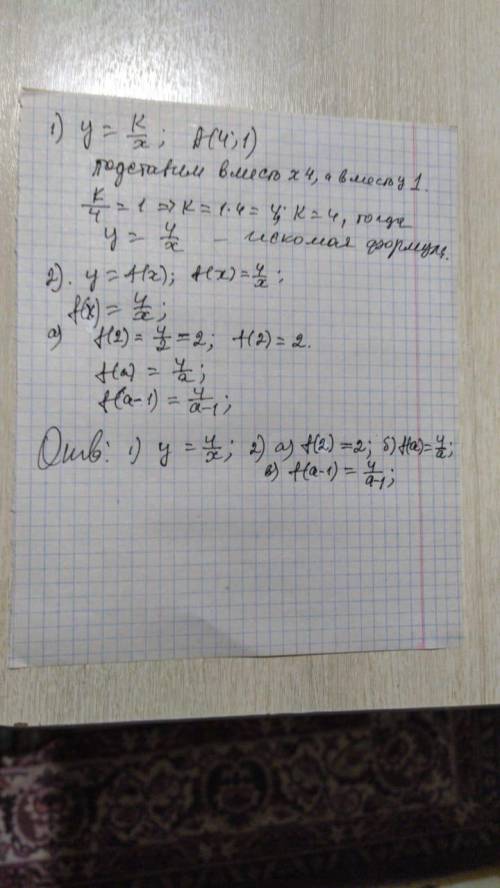 1) y = K/x; A(4;1)
подставим вместо x 4, а вместо y 1.
K/4 = 1 => K = 1·4 = 4; K = 4, тогда
y = 4/x - искомая формула.
2). y = f(x); f(x) = 4/x;
f(x) = 4/x;
а) f(2) = 4/2 = 2; f(2) = 2.
f(a) = 4/a;
f(a-1) = 4/a-1;
Отв: 1) y = 4/x; 2) а) f(2) = 2; б) f(a) = 4/a;
в) f(a-1) = 4/a-1;